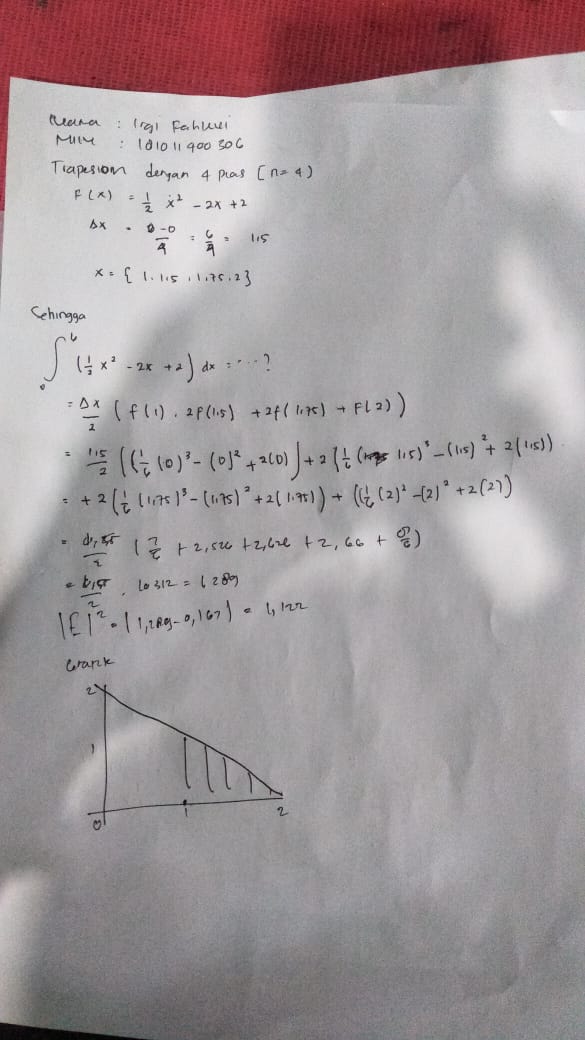 Nama : Irgi Fahmi
MIM : 181011400306
Trapesiom dengan 4 pias (n=4)
F(x) = 1/2 x² - 2x + 2
Δx = -0/4 = 6/4 = 1,5
x = { 1. 1,5 , 1,75 . 2 }
Sehingga
∫₀⁶ (1/2 x² - 2x + 2) dx = ....?
= Δx/2 ( f(1) . 2f(1,5) + 2f(1,75) + F(2))
= 1,5/2 ((1/6 (0)³ - (0)² + 2(0)) + 2(1/6 (1,5)³ - (1,5)² + 2(1,5))
= + 2(1/6 (1,75)³ - (1,75)² + 2(1,75)) + ((1/6 (2)² - (2)² + 2(2))
= /2 (7/6 + 2,526 + 2,628 + 2,66 + )
= /2 . 10312 = 1289
|E|² = |1,289-0,167| = 1,122
Grafik
2
1
0 1 2